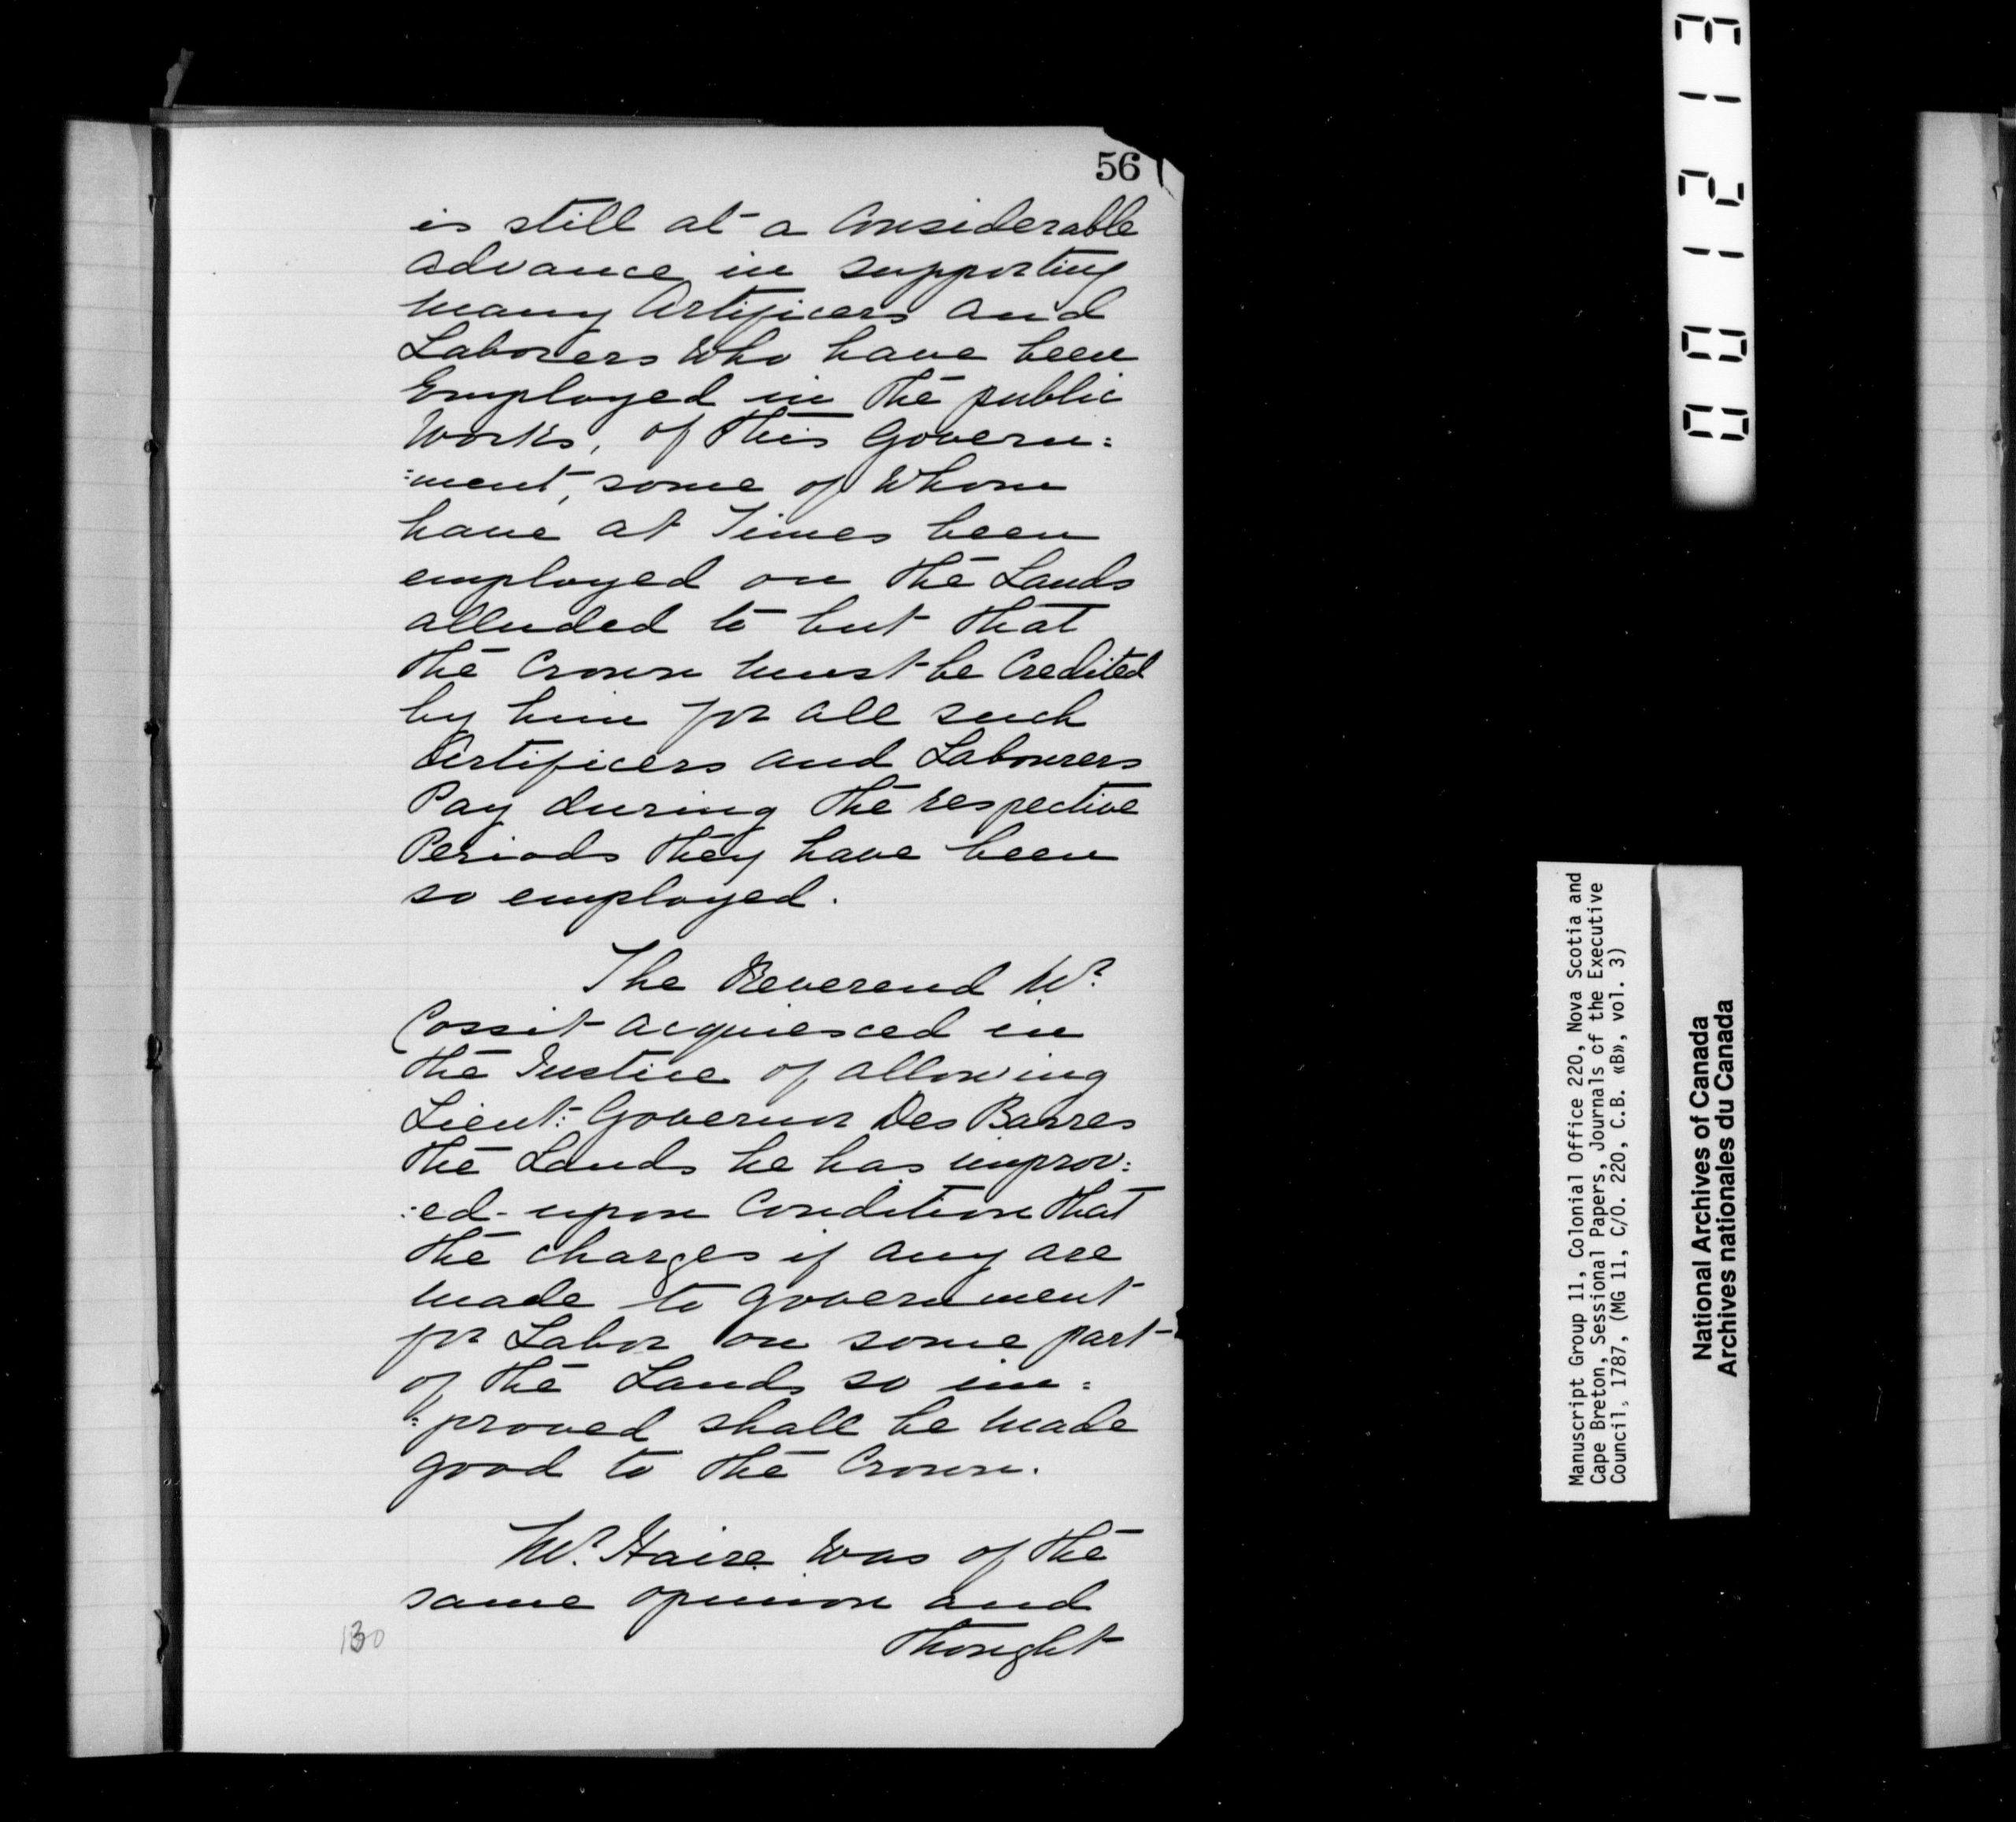 56
is still at a Considerable
advance in supporting
many Artificers and
Laborers who have been
Employed in the public
Works, of this Govern:
:ment, some of Whom
have at Times been
employed on the Lands
alluded to but that
the Crown must be Credited
by him for all such
Artificers and Labourers
Pay during the respective
Periods they have been
so employed.
The Reverend Mr.
Cossit acquiesced in
the Justice of allowing
Lieut: Governor Des Barres
the Lands he has improv:
:ed - upon Condition that
the charges if any are
made to Government
for Labor on some part
of the Lands so im:
:proved shall be made
good to the Crown.
Mr. Haire was of the
same opinion and
thought
130
001213
Manuscript Group 11, Colonial Office 220, Nova Scotia and
Cape Breton, Sessional Papers, Journals of the Executive
Council, 1787, (MG 11, C/O. 220, C.B. «B», vol. 3)
National Archives of Canada
Archives nationales du Canada